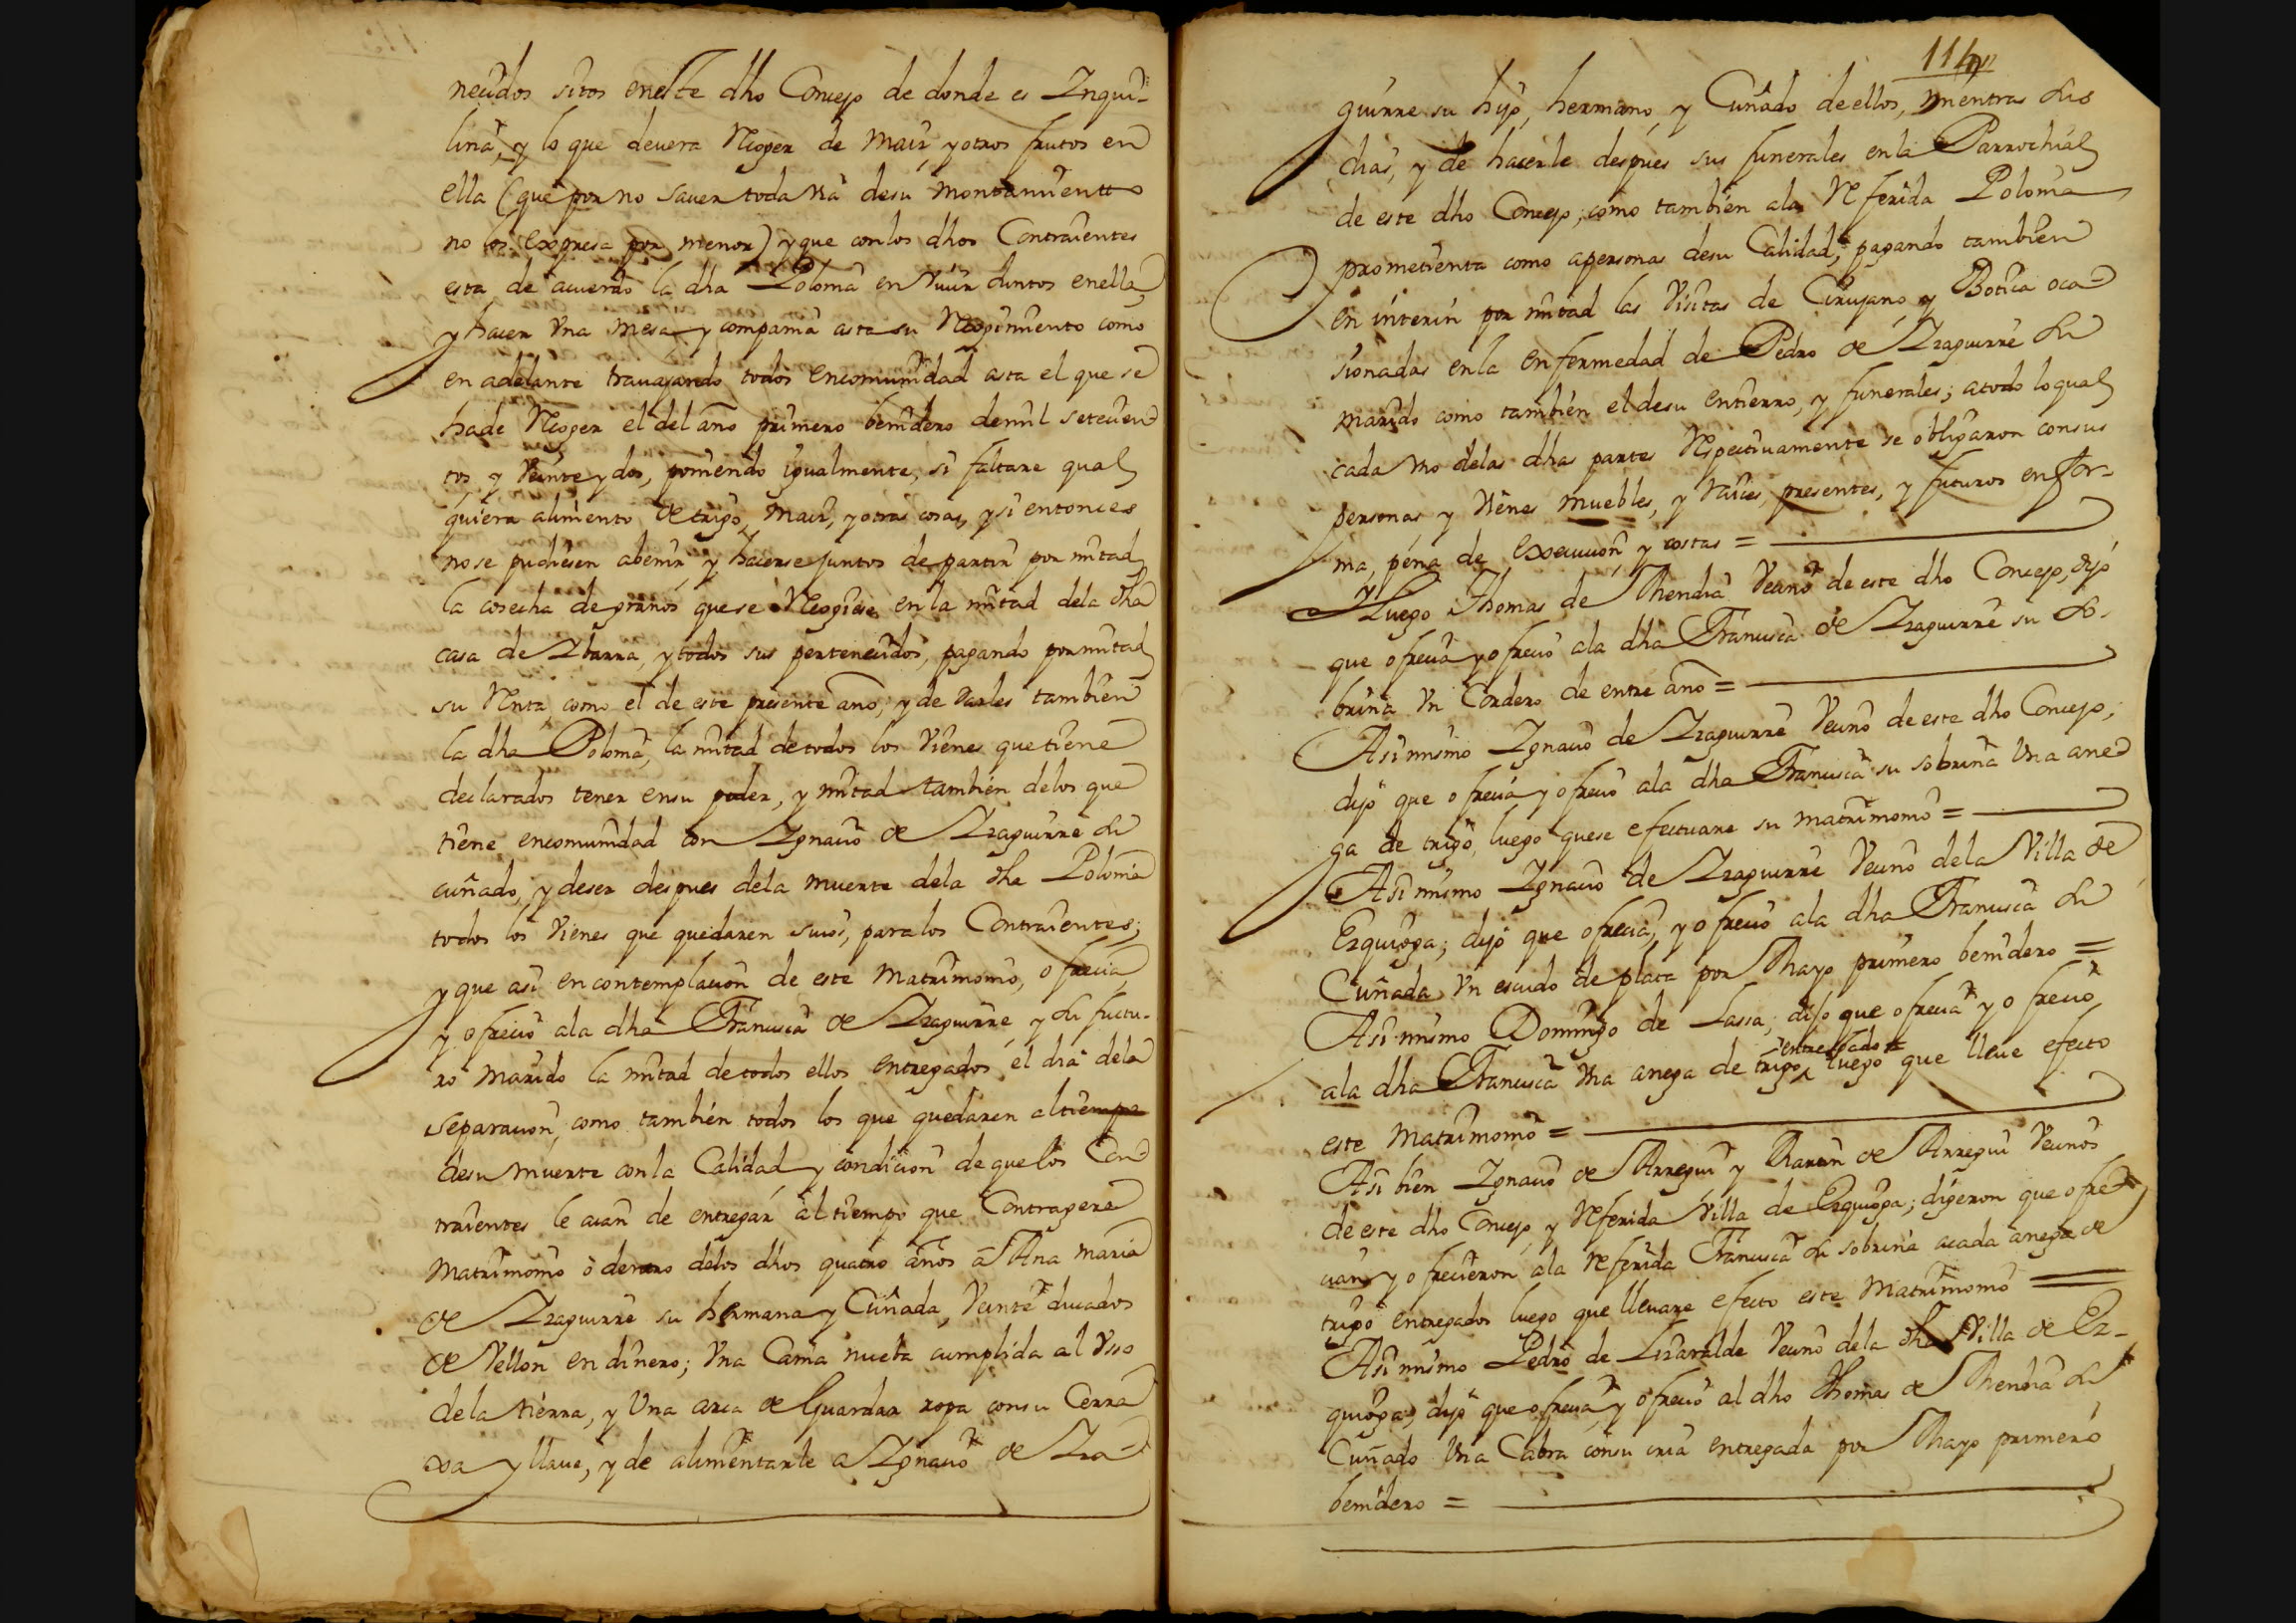 necidos sitos eneste dho Concejo de donde es Inqui-
lina, y lo que devera Recoger de Maiz, y otros frutos en
ella (que por no saver todavia desu montamientto
no los expresa por menor) y que conlos dhos Contraientes
esta de acuerdo la dha Poloma en vivir Juntos enella,
y hacer Una mesa y compañia asta su Recogimiento como
en adelante travajando todos encomunidad asta el que se
hade Recoger el del año primero benidero demil setecien
tos y Veinte y dos, poniendo igualmente, si faltare qual
quiera alimento de trigo, Maiz, y otras cosas, y si entonces
nose pudiesen abenir y hacerse juntos de partir por mitad
la cosecha de granos que se Recogiese en la mitad dela dha
casa de Ybarra, y todos sus pertenecidos, pagando por mitad
su Renta como el de este presente año; y de Darles tambien
la dha Poloma, la mitad detodos los Vienes que tiene
declarados tener ensu poder, y mitad tambien delos que
tiene encomunidad con Ygnacio de Yzaguirre su
cuñado, y deser despues dela muerte dela dha Poloma
todos los Vienes que quedaren suios, para los Contraientes;
y que asi en contemplacion de este Matrimonio, ofrecia,
y ofrecio ala dha Francisca de Yzaguirre, y su futu-
ro marido la mitad detodos ellos entregados el dia dela
separacion, como tambien todos los que quedaren altiempo
desu muerte con la Calidad, y condicion de que los Con
traientes le aian de entregar al tiempo que Contragere
Matrimonio ò dentro delos dhos quatro años a Ana Maria
de Yzaguirre su hermana y Cuñada, Veinte ducados
de Vellon en dinero; Una Cama nueba cumplida al Usso
dela tierra, y Una arca de Guardar ropa consu Cerra
xa y llave, y de alimentarle a Ygnacio de Yza-
114
guirre su hijo, hermano, y Cuñado deellos, mientras sus
dias, y de hacerle despues sus funerales enla Parrochial
de este dho Concejo; como tambien ala Referida Poloma
prometienta como apersonas desu Calidad; pagando tambien
en interin por mitad las Visitas de Cirujano, y Botica oca
sionadas enla enfermedad de Pedro de Yzaguirre su
marido como tambien el desu entierro, y funerales; atodo loqual
cada uno delas dhas partes Respectivamente se obligaron consus
personas y Vienes muebles, y raices, presentes, y futuros en for-
ma, pena de execucion, y costas =
Y Luego Thomas de Mendia Vecino de este dho Concejo, dijo
que ofrecia y ofrecio ala dha Francisca de Yzaguirre su so-
brina Un Cordero de entre año =
Asimismo Ygnacio de Yzaguirre Vecino de este dho Concejo,
dijo que ofrecia y ofrecio ala dha Francisca su sobrina Una ane
ga de trigo, luego quese efectuare su matrimonio =
Asimismo Ygnacio de Yzaguirre Vecino dela Villa de
Ezquioga; dijo que ofrecia, y ofrecio ala dha Francisca su
Cuñada Un escudo de plata por Mayo primero benidero =
Asi mismo Domingo de Lassa; dijo que ofrecia y ofrecio,
entregado
ala dha Francisca Una anega de trigo luego que lleve efecto
este Matrimonio =
Asi bien Ygnacio de Arregui y Martin de Arregui Vecinos
de este dho Concejo y Referida Villa de Ezquioga; digeron que ofre
cian y ofrecieron ala referida Francisca su sobrina acada anega de
trigo entregados luego que llevare efecto este Matrimonio =
Asi mismo Pedro de Lizaralde Vecino dela dha Villa de Ez-
quioga, dijo que ofrecia, y ofrecio al dho Thomas de Mendia su
Cuñado Una Cabra consu cria entregada por Mayo primero
benidero =